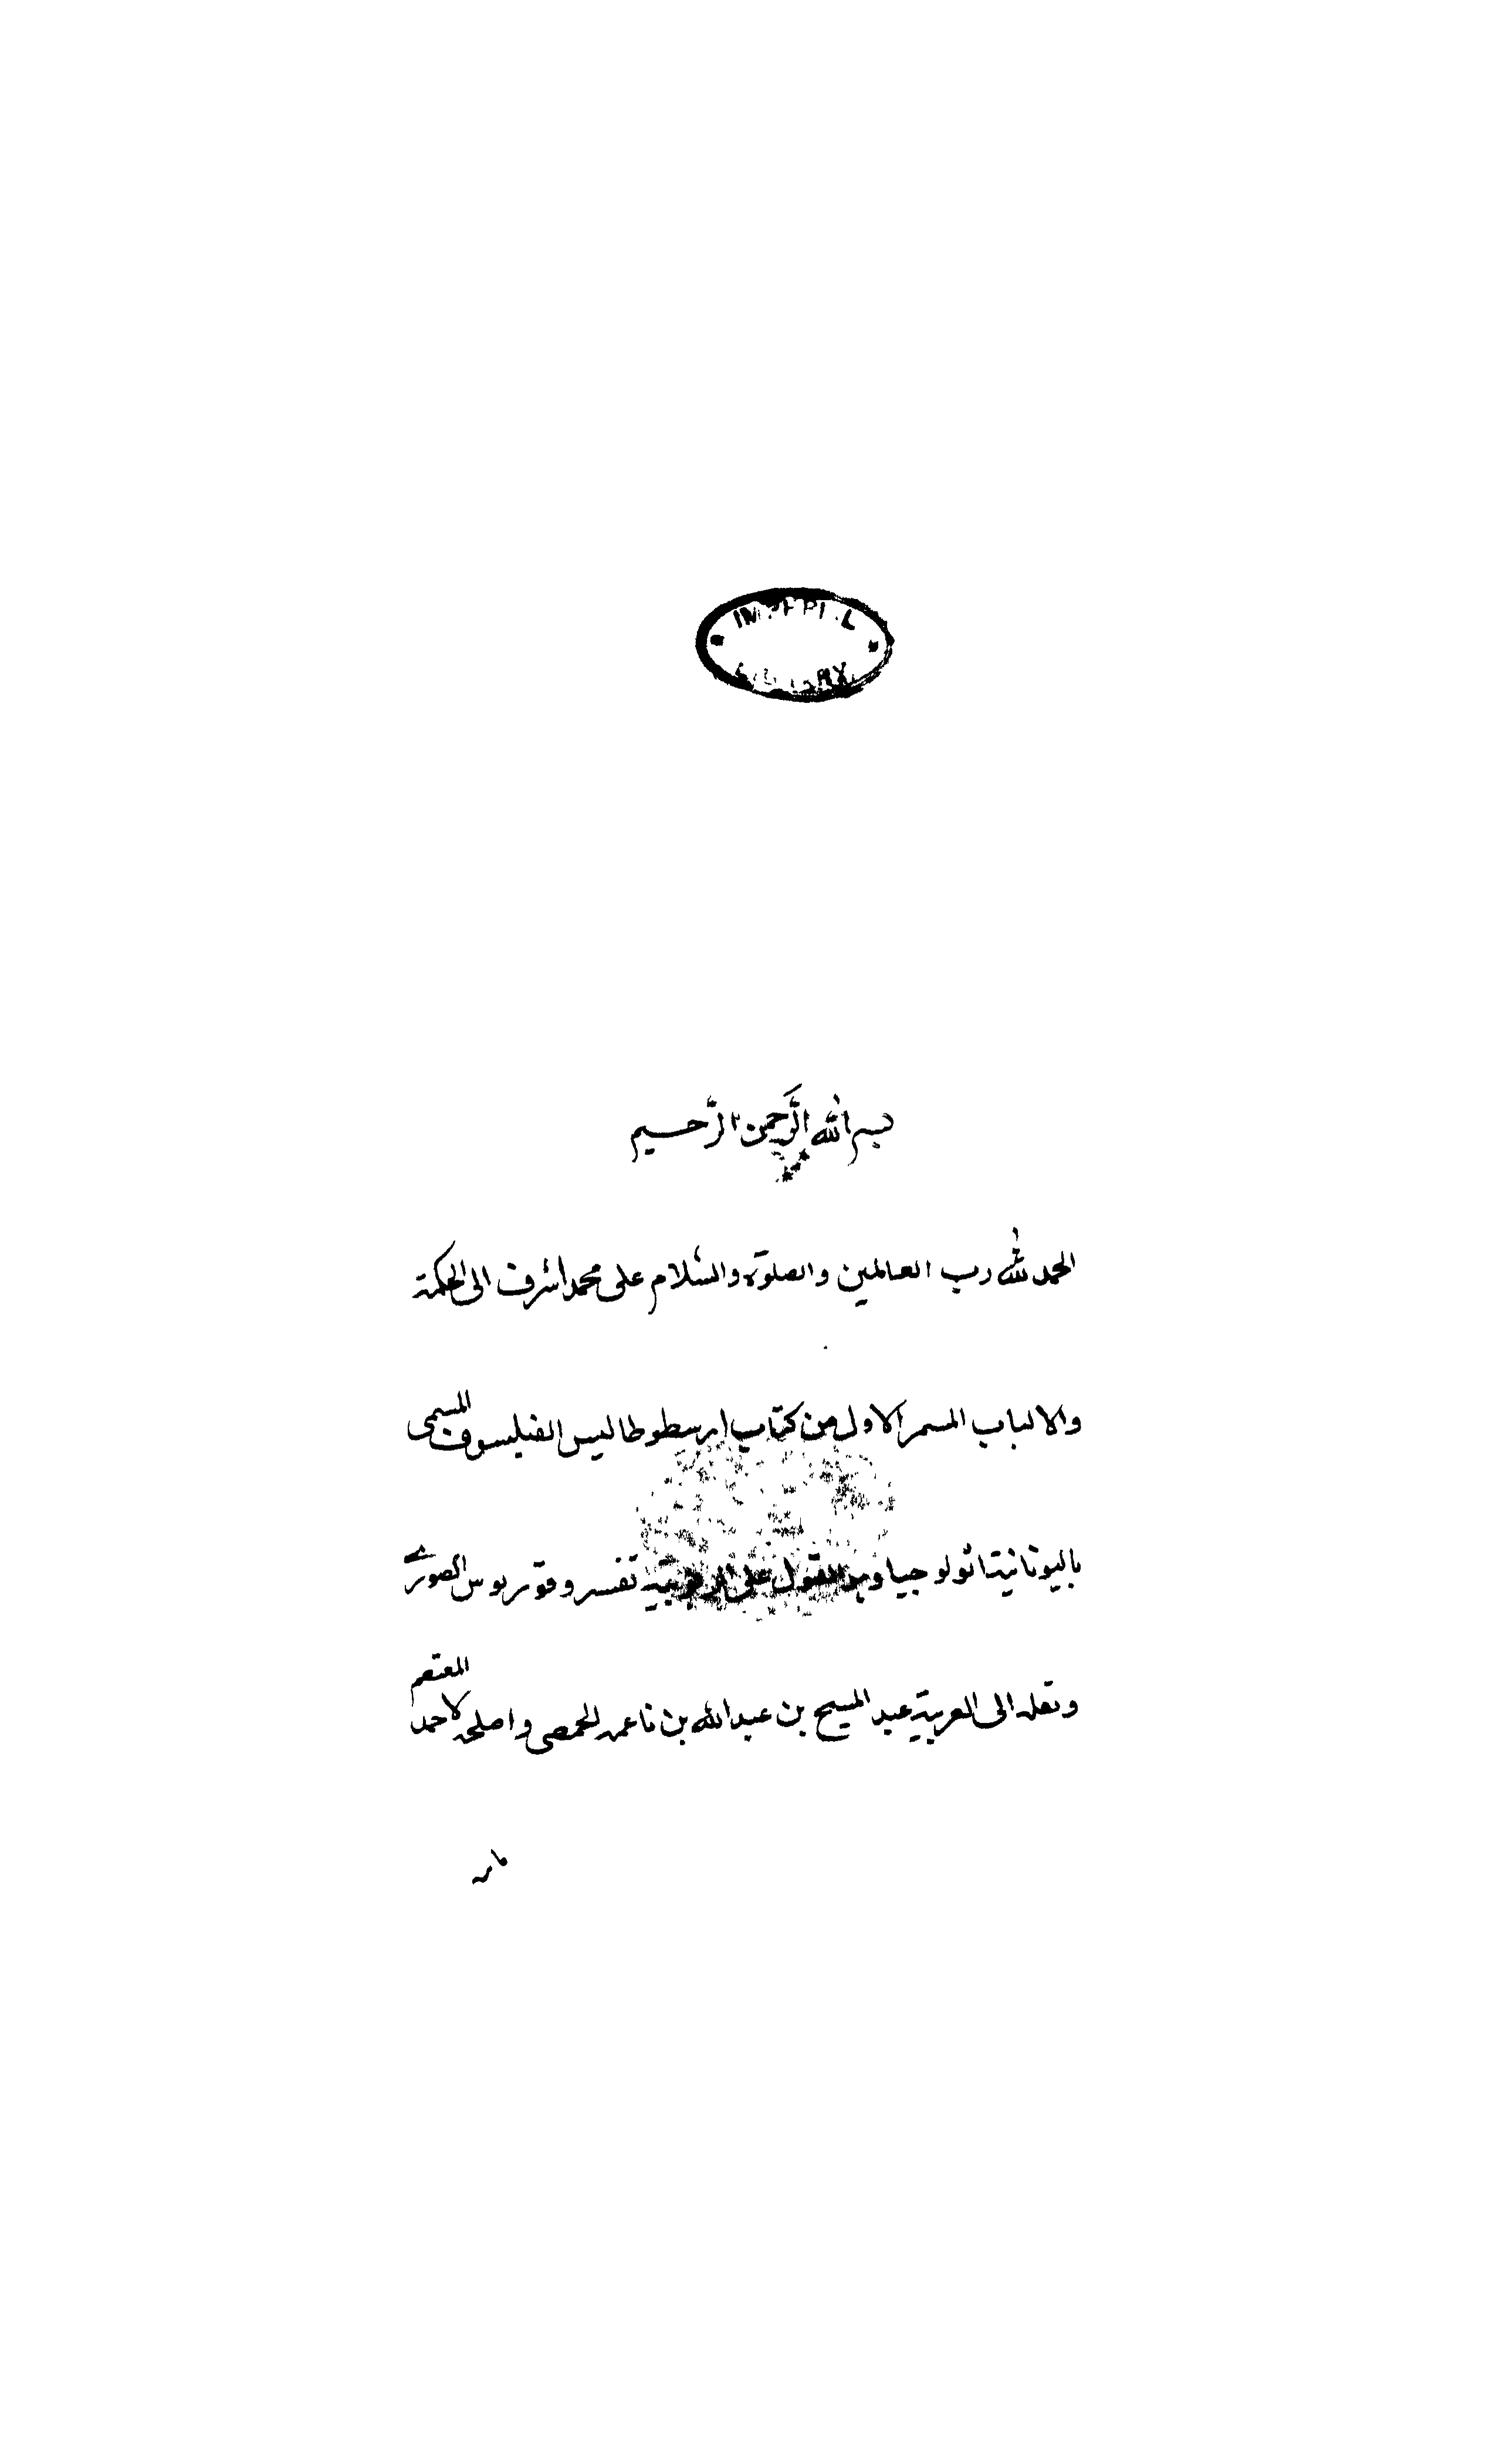 IMPERIAL
LIBRARY
بسم الله الرَّحمن الرَّحيم
الحمد لله رب العالمين والصلوة والسّلام على محمد اشرف الى الحكمة
والالباب المسمر الاول من كتاب ارسطوطاليس الفيلسوف المسمى
باليونانية اثولوجيا وهو القول على الربوبية تفسر وقوريوس الصوري
ونقله الى العربية عبد المسيح بن عبد الله بن ناعمه الحمصى واصلحه لاحمد المعتصم